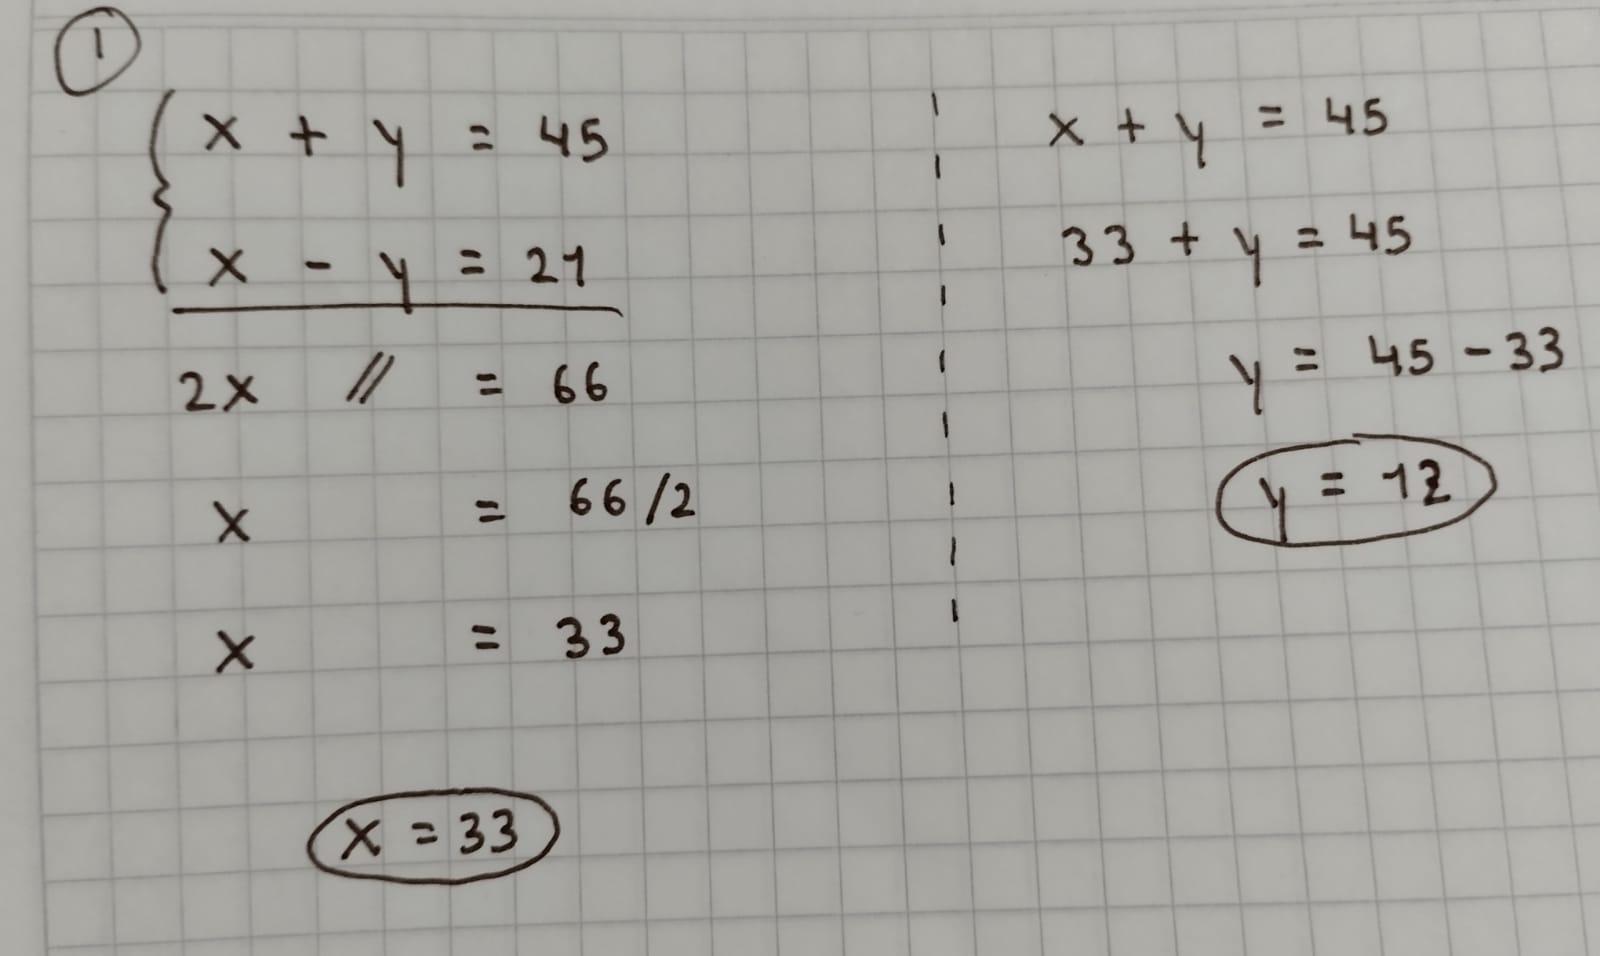 1
x + y = 45
x - y = 21
2x // = 66
x = 66/2
x = 33
x = 33
x + y = 45
33 + y = 45
y = 45 - 33
y = 12